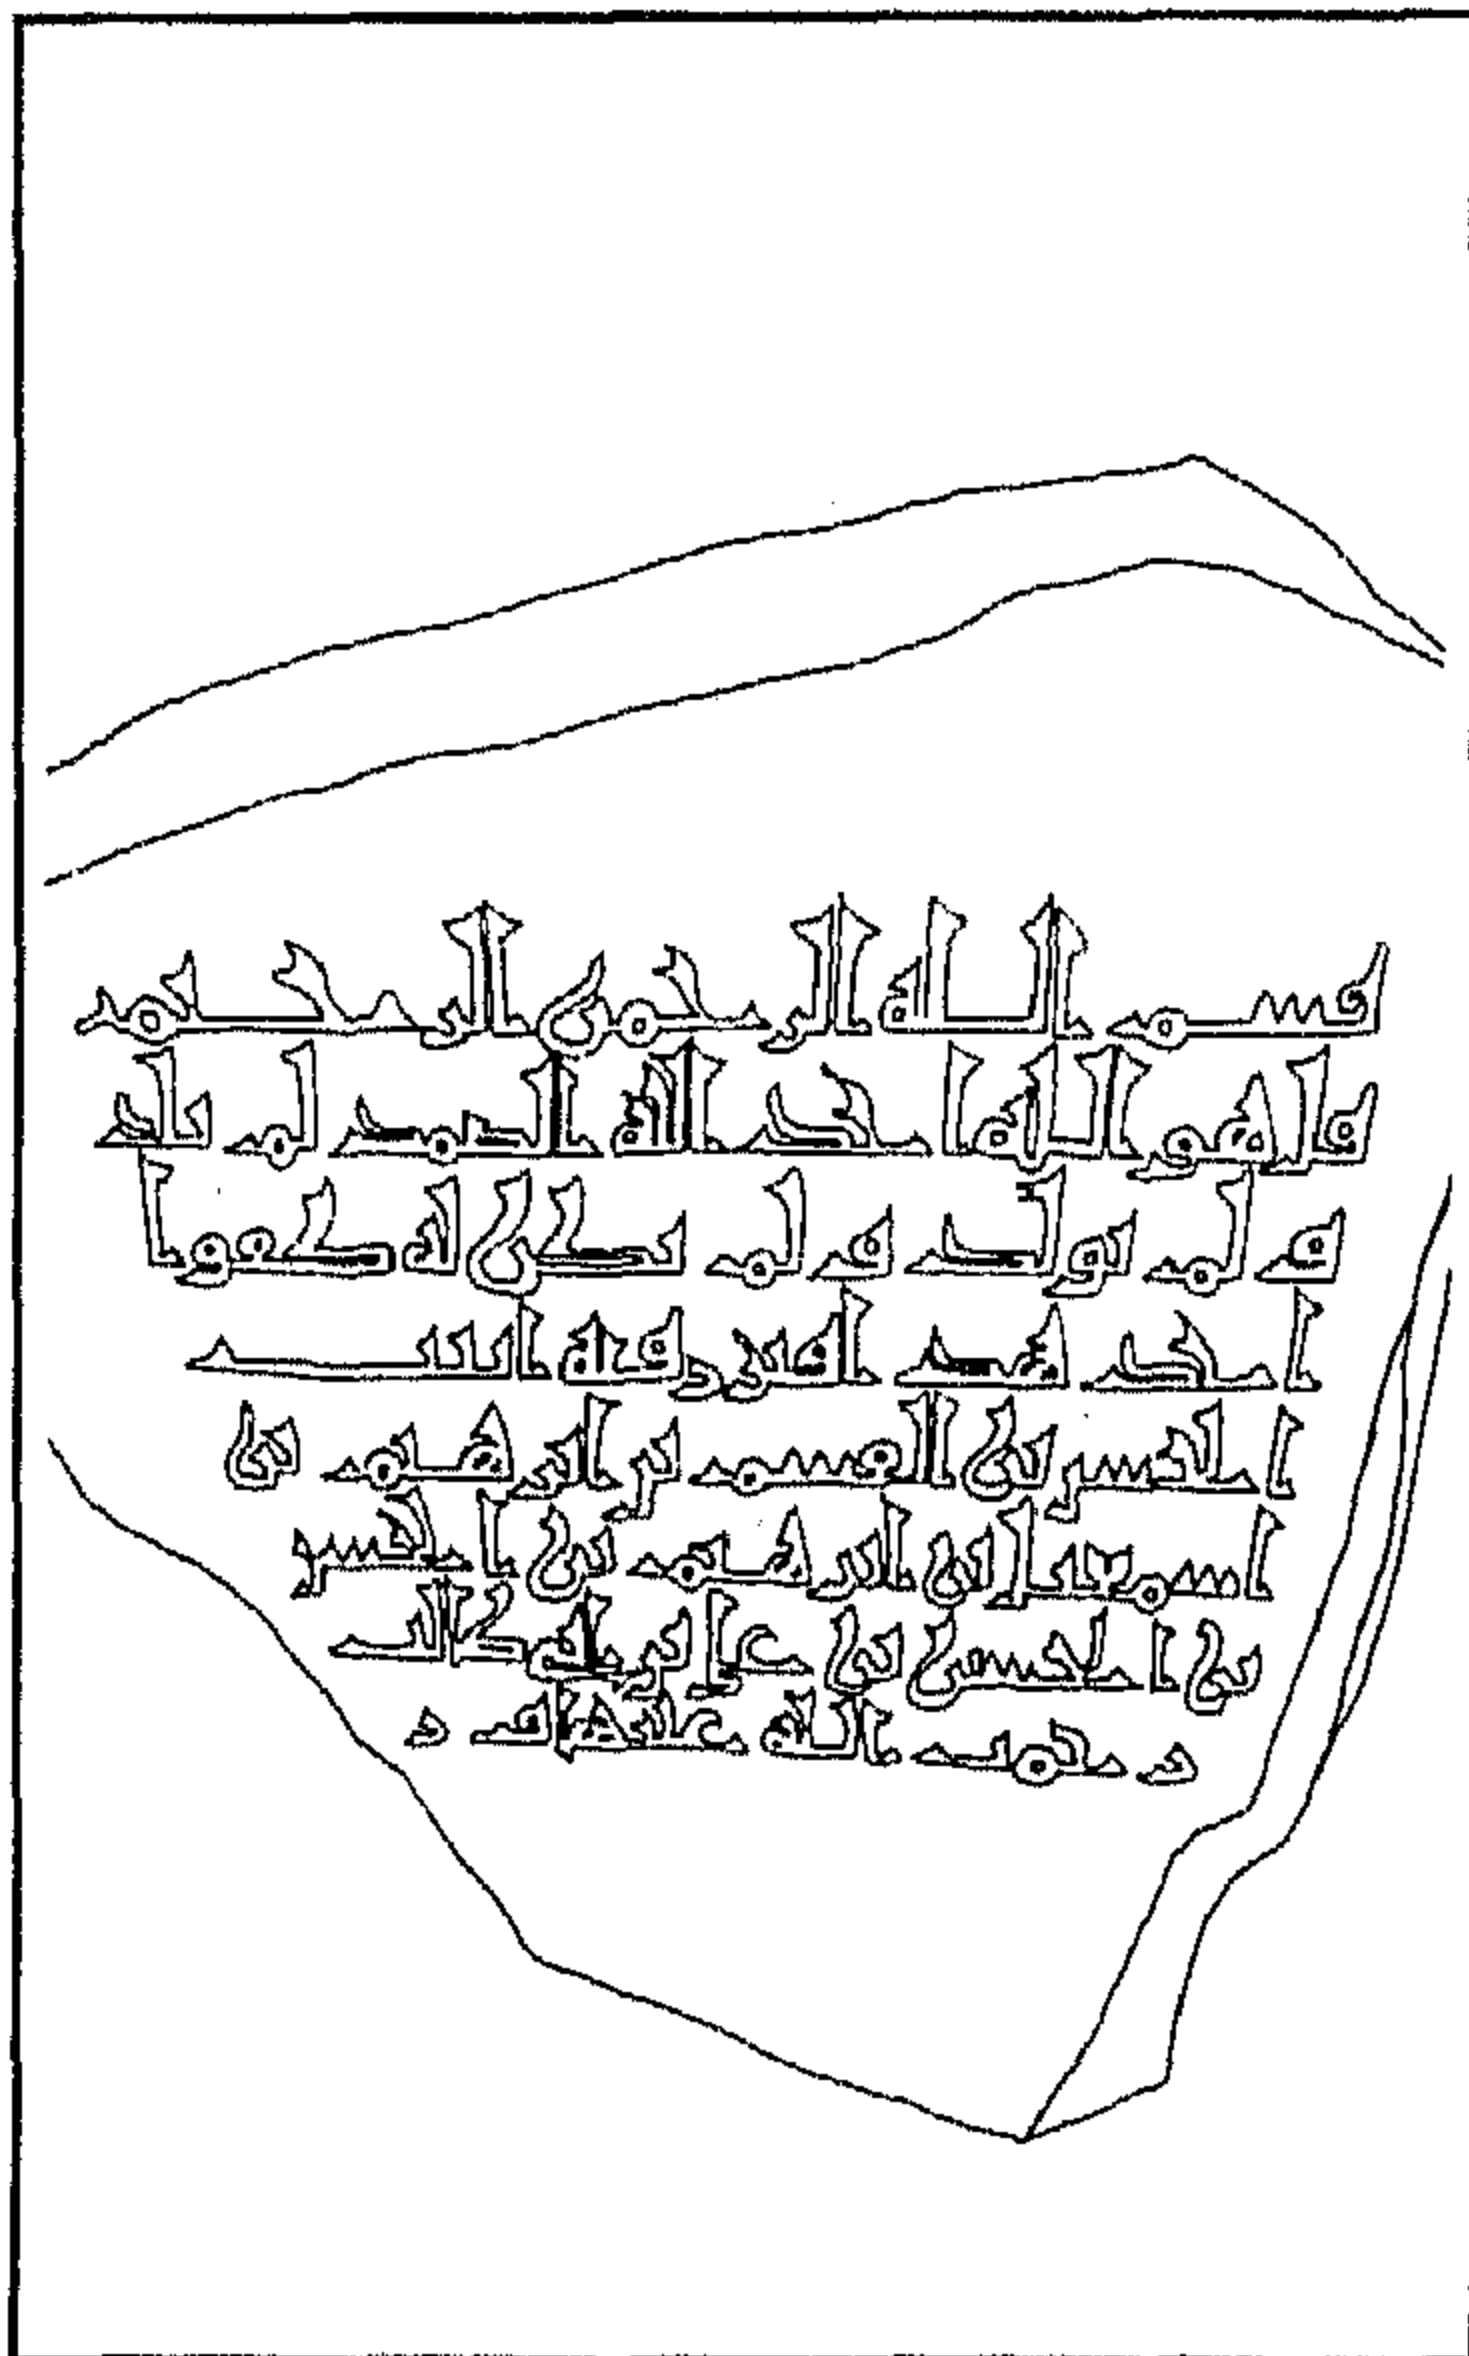 بسم الله الرحمن الرحيم
قل هو الله احد الله الصمد لم يلد
و لم يولد و لم يكن له كفوا
احد هذا قبر رقيه ابنت
الحسن بن القسم بن ابرهيم بن
اسمعيل بن ابرهيم بن الحسن
بن الحسن بن علي بن ابي طالب
رحمت الله